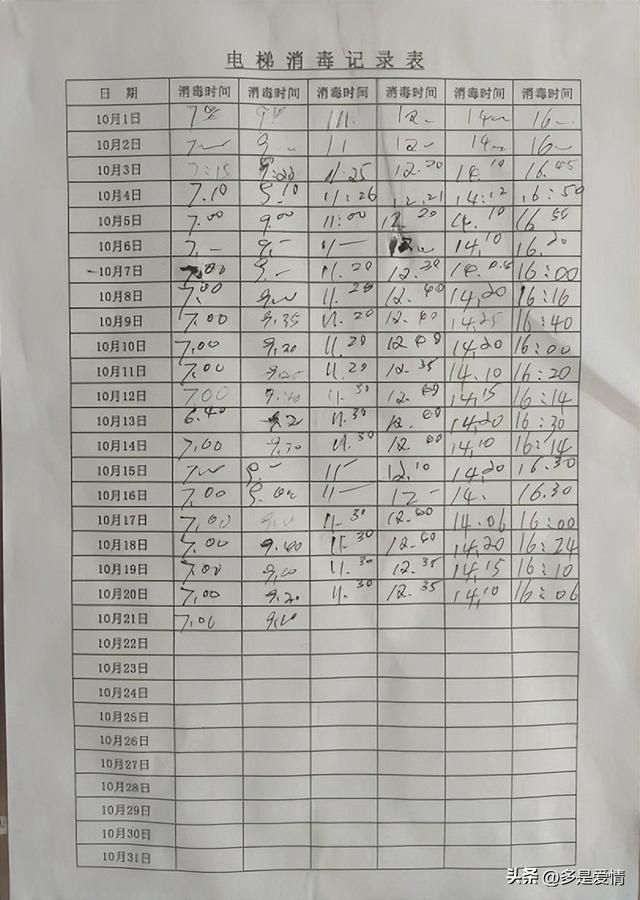 电梯消毒记录表
日 期 消毒时间 消毒时间 消毒时间 消毒时间 消毒时间 消毒时间
10月1日
10月2日 11
10月3日 7:15 9:20 11:25 12.20 14.10 16.45
10月4日 7.10 9.10 11:26 12.21 14:12 16:50
10月5日 7.00 9.00 11:00 12.20 14.10 16
10月6日 14,10 16.20
10月7日 7.00 11.20 12.30 16:00
10月8日 7.00 11.20 12.40 14,20 16:16
10月9日 7.00 9.35 11.20 14.25 16:40
10月10日 7,00 9.20 11.20 14,20 16:00
10月11日 7.00 11.20 12.35 14.10 16:20
10月12日 7.00 11.30 14,15 16:14
10月13日 6.40 11.30 14,20 16:30
10月14日 7,00 11.30 14,10 16:14
10月15日 12,10 14,20 16.30
10月16日 7,00 9.00 14. 16.30
10月17日 7,00 11.30 12.40 14.06 16:00
10月18日 7.00 9.40 11.30 12.40 14,20 16:24
10月19日 7.00 11.30 12.35 14,15 16:10
10月20日 7,00 9,20 11.30 12.35 14,10 16:06
10月21日 9,10
10月22日
10月23日
10月24日
10月25日
10月26日
10月27日
10月28日
10月29日
10月30日
10月31日
头条 @多是爱情